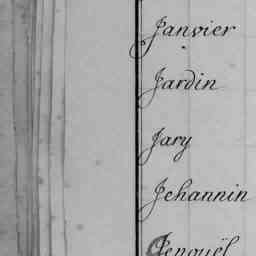 Janvier
Jardin
Jary
Jehannin
Jenouël